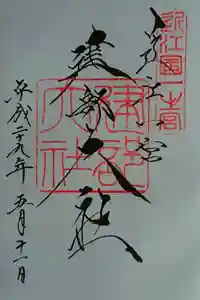 近江國一宮
建部大社
建部大社
平成二十九年 五月十一日